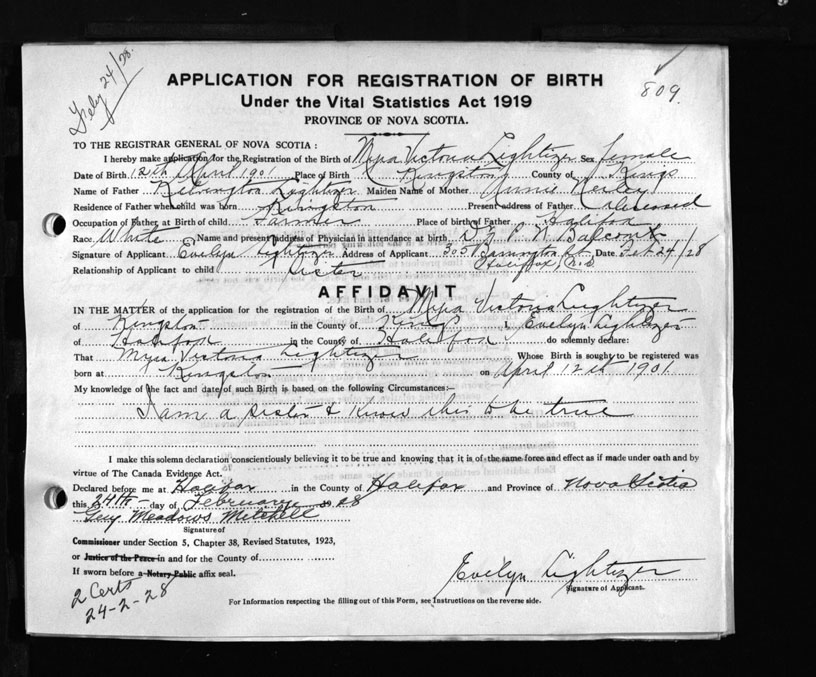 Feby 24/28.
809.
APPLICATION FOR REGISTRATION OF BIRTH
Under the Vital Statistics Act 1919
PROVINCE OF NOVA SCOTIA.
TO THE REGISTRAR GENERAL OF NOVA SCOTIA :
I hereby make application for the Registration of the Birth of Myra Victoria Lightizer Sex female
Date of Birth 12th April 1901 Place of Birth Kingston County of Kings
Name of Father Lightizer Maiden Name of Mother Annie
Residence of Father when child was born Kingston Present address of Father deceased
Occupation of Father at Birth of child Farmer Place of birth of Father Halifax
Race White Name and present address of Physician in attendance at birth Dr P N Balcom
Signature of Applicant Evelyn Lightizer Address of Applicant 305 Barrington St. Date Feb 24/28
Halifax, N.S.
Relationship of Applicant to child Sister
AFFIDAVIT
IN THE MATTER of the application for the registration of the Birth of Myra Victoria Lightizer
of Kingston in the County of Kings I, Evelyn Lightizer
of Halifax in the County of Halifax do solemnly declare:
That Myra Victoria Lightizer Whose Birth is sought to be registered was
born at Kingston on April 12th 1901.
My knowledge of the fact and date of such Birth is based on the following Circumstances:—
I am a sister & know this to be true
I make this solemn declaration conscientiously believing it to be true and knowing that it is of the same force and effect as if made under oath and by
virtue of The Canada Evidence Act.
Declared before me at Halifax in the County of Halifax and Province of Nova Scotia
this 24th day of February 1928
Guy Meadows Mitchell
Signature of
Commissioner under Section 5, Chapter 38, Revised Statutes, 1923,
or Justice of the Peace in and for the County of
If sworn before a Notary Public affix seal.
Evelyn Lightizer
Signature of Applicant.
2 Certs
24-2-28
For Information respecting the filling out of this Form, see Instructions on the reverse side.